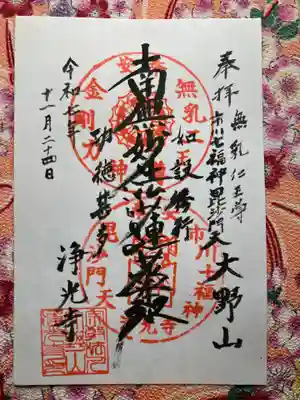 奉拝
無乳仁王尊
市川七福神毘沙門天
大野山
如説修行
南無妙法蓮華経
功徳甚多
浄光寺
令和七年
十一月二十四日
無乳仁王
金剛力
神
安産
市川七福神
毘沙門天
浄光寺